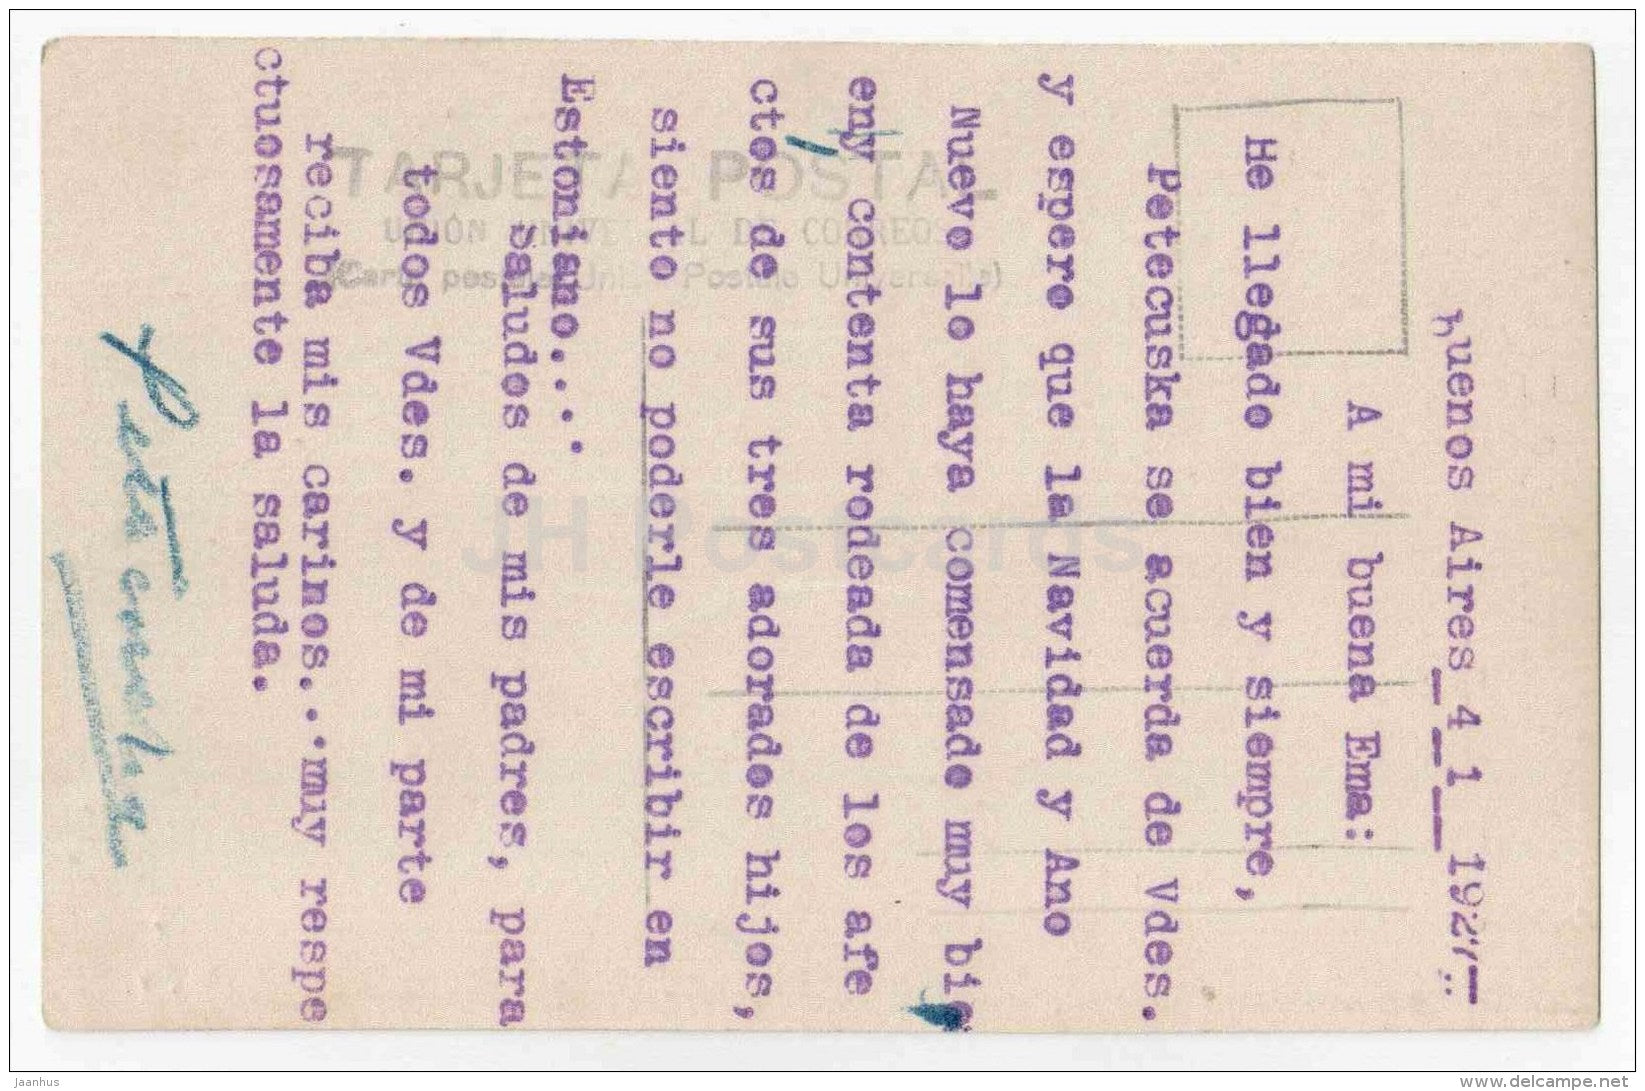 buenos Aires_4_1_1927_..
A mi buena Ema:
He llegado bien y siempre,
Petecuska se acuerda de Vdes.
y espero que la Navidad y Ano
Nuevo lo haya comensado muy bie
eny contenta rodeada de los afe
ctos de sus tres adorados hijos,
siento no poderle escribir en
Estoniano....
Saludos de mis padres, para
todos Vdes. y de mi parte
reciba mis carinos...muy respe
ctuosamente la saluda.
TARJETA POSTAL
UNIÓN UNIVERSAL DE CORREOS
(Carte postale Union Postale Universelle)
JH Postcards
jaanhus
delcampe.net